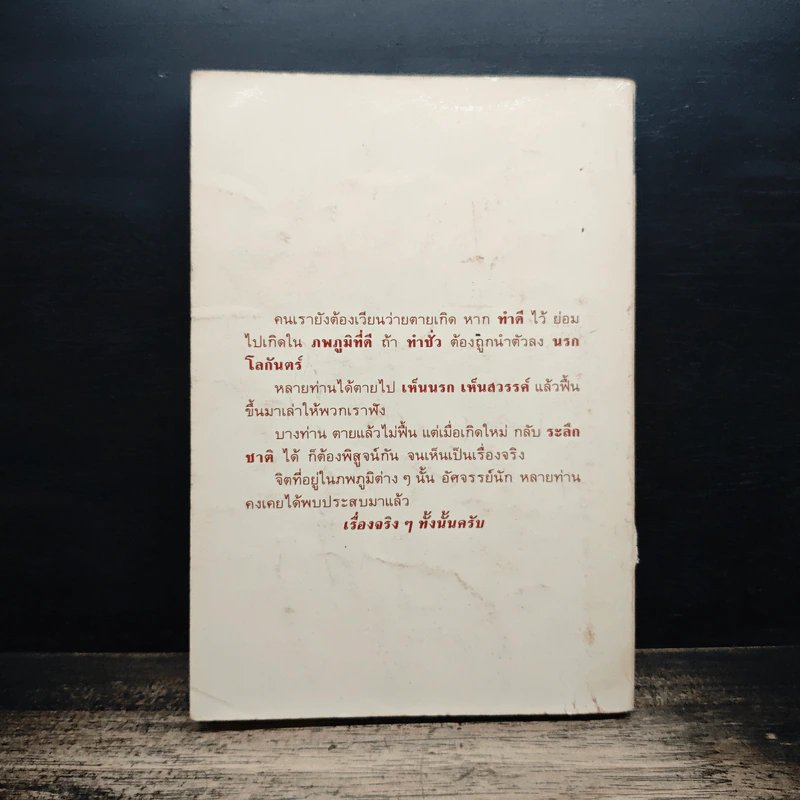 คนเรายังต้องเวียนว่ายตายเกิด หาก ทำดี ไว้ ย่อม
ไปเกิดใน ภพภูมิที่ดี ถ้า ทำชั่ว ต้องถูกนำตัวลง นรก
โลกันตร์
หลายท่านได้ตายไป เห็นนรก เห็นสวรรค์ แล้วฟื้น
ขึ้นมาเล่าให้พวกเราฟัง
บางท่าน ตายแล้วไม่ฟื้น แต่เมื่อเกิดใหม่ กลับ ระลึก
ชาติ ได้ ก็ต้องพิสูจน์กัน จนเห็นเป็นเรื่องจริง
จิตที่อยู่ในภพภูมิต่าง ๆ นั้น อัศจรรย์นัก หลายท่าน
คงเคยได้พบประสบมาแล้ว
เรื่องจริง ๆ ทั้งนั้นครับ